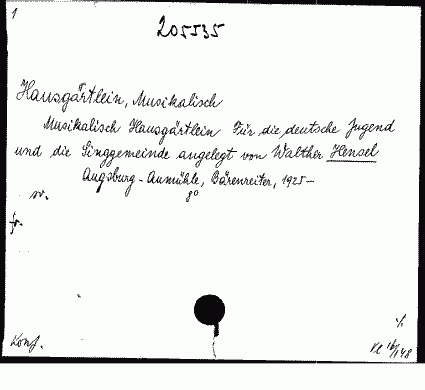 1
205535
Hausgärtlein, Musikalisch
Musikalisch Hausgärtlein Für die deutsche Jugend
und die Singgemeinde angelegt von Walther Hensel
Augsburg-Aumühle, Bärenreiter, 1925—
8°
fr.
Konf.